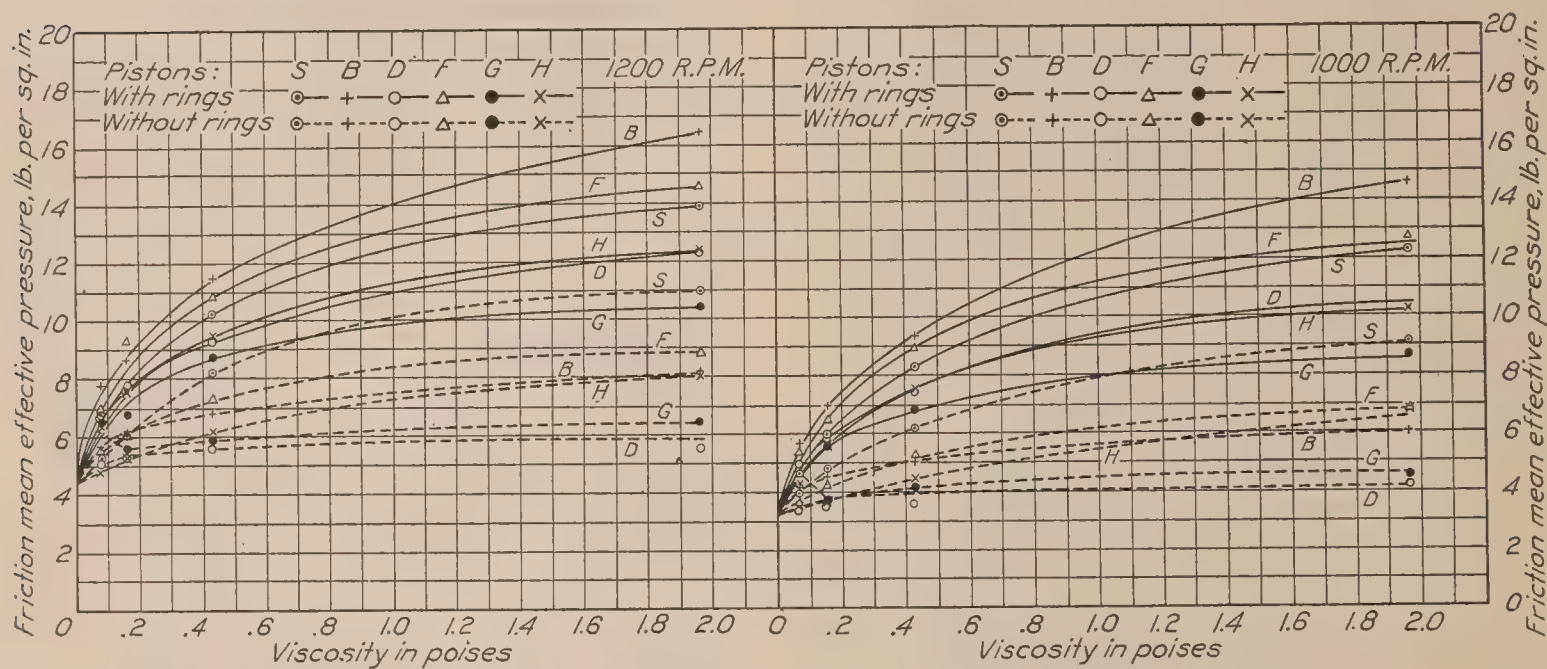 Friction mean effective pressure, lb. per sq. in.
20
18
16
14
12
10
8
6
4
2
0
Pistons: S B D F G H 1200 R.P.M.
With rings
Without rings
B
F
S
H
D
S
G
F
B
H
G
D
0 .2 .4 .6 .8 1.0 1.2 1.4 1.6 1.8 2.0
Viscosity in poises
Pistons: S B D F G H 1000 R.P.M.
With rings
Without rings
B
F
S
D
H
S
G
F
B
H
G
D
0 .2 .4 .6 .8 1.0 1.2 1.4 1.6 1.8 2.0
Viscosity in poises
20
18
16
14
12
10
8
6
4
2
0
Friction mean effective pressure, lb. per sq. in.